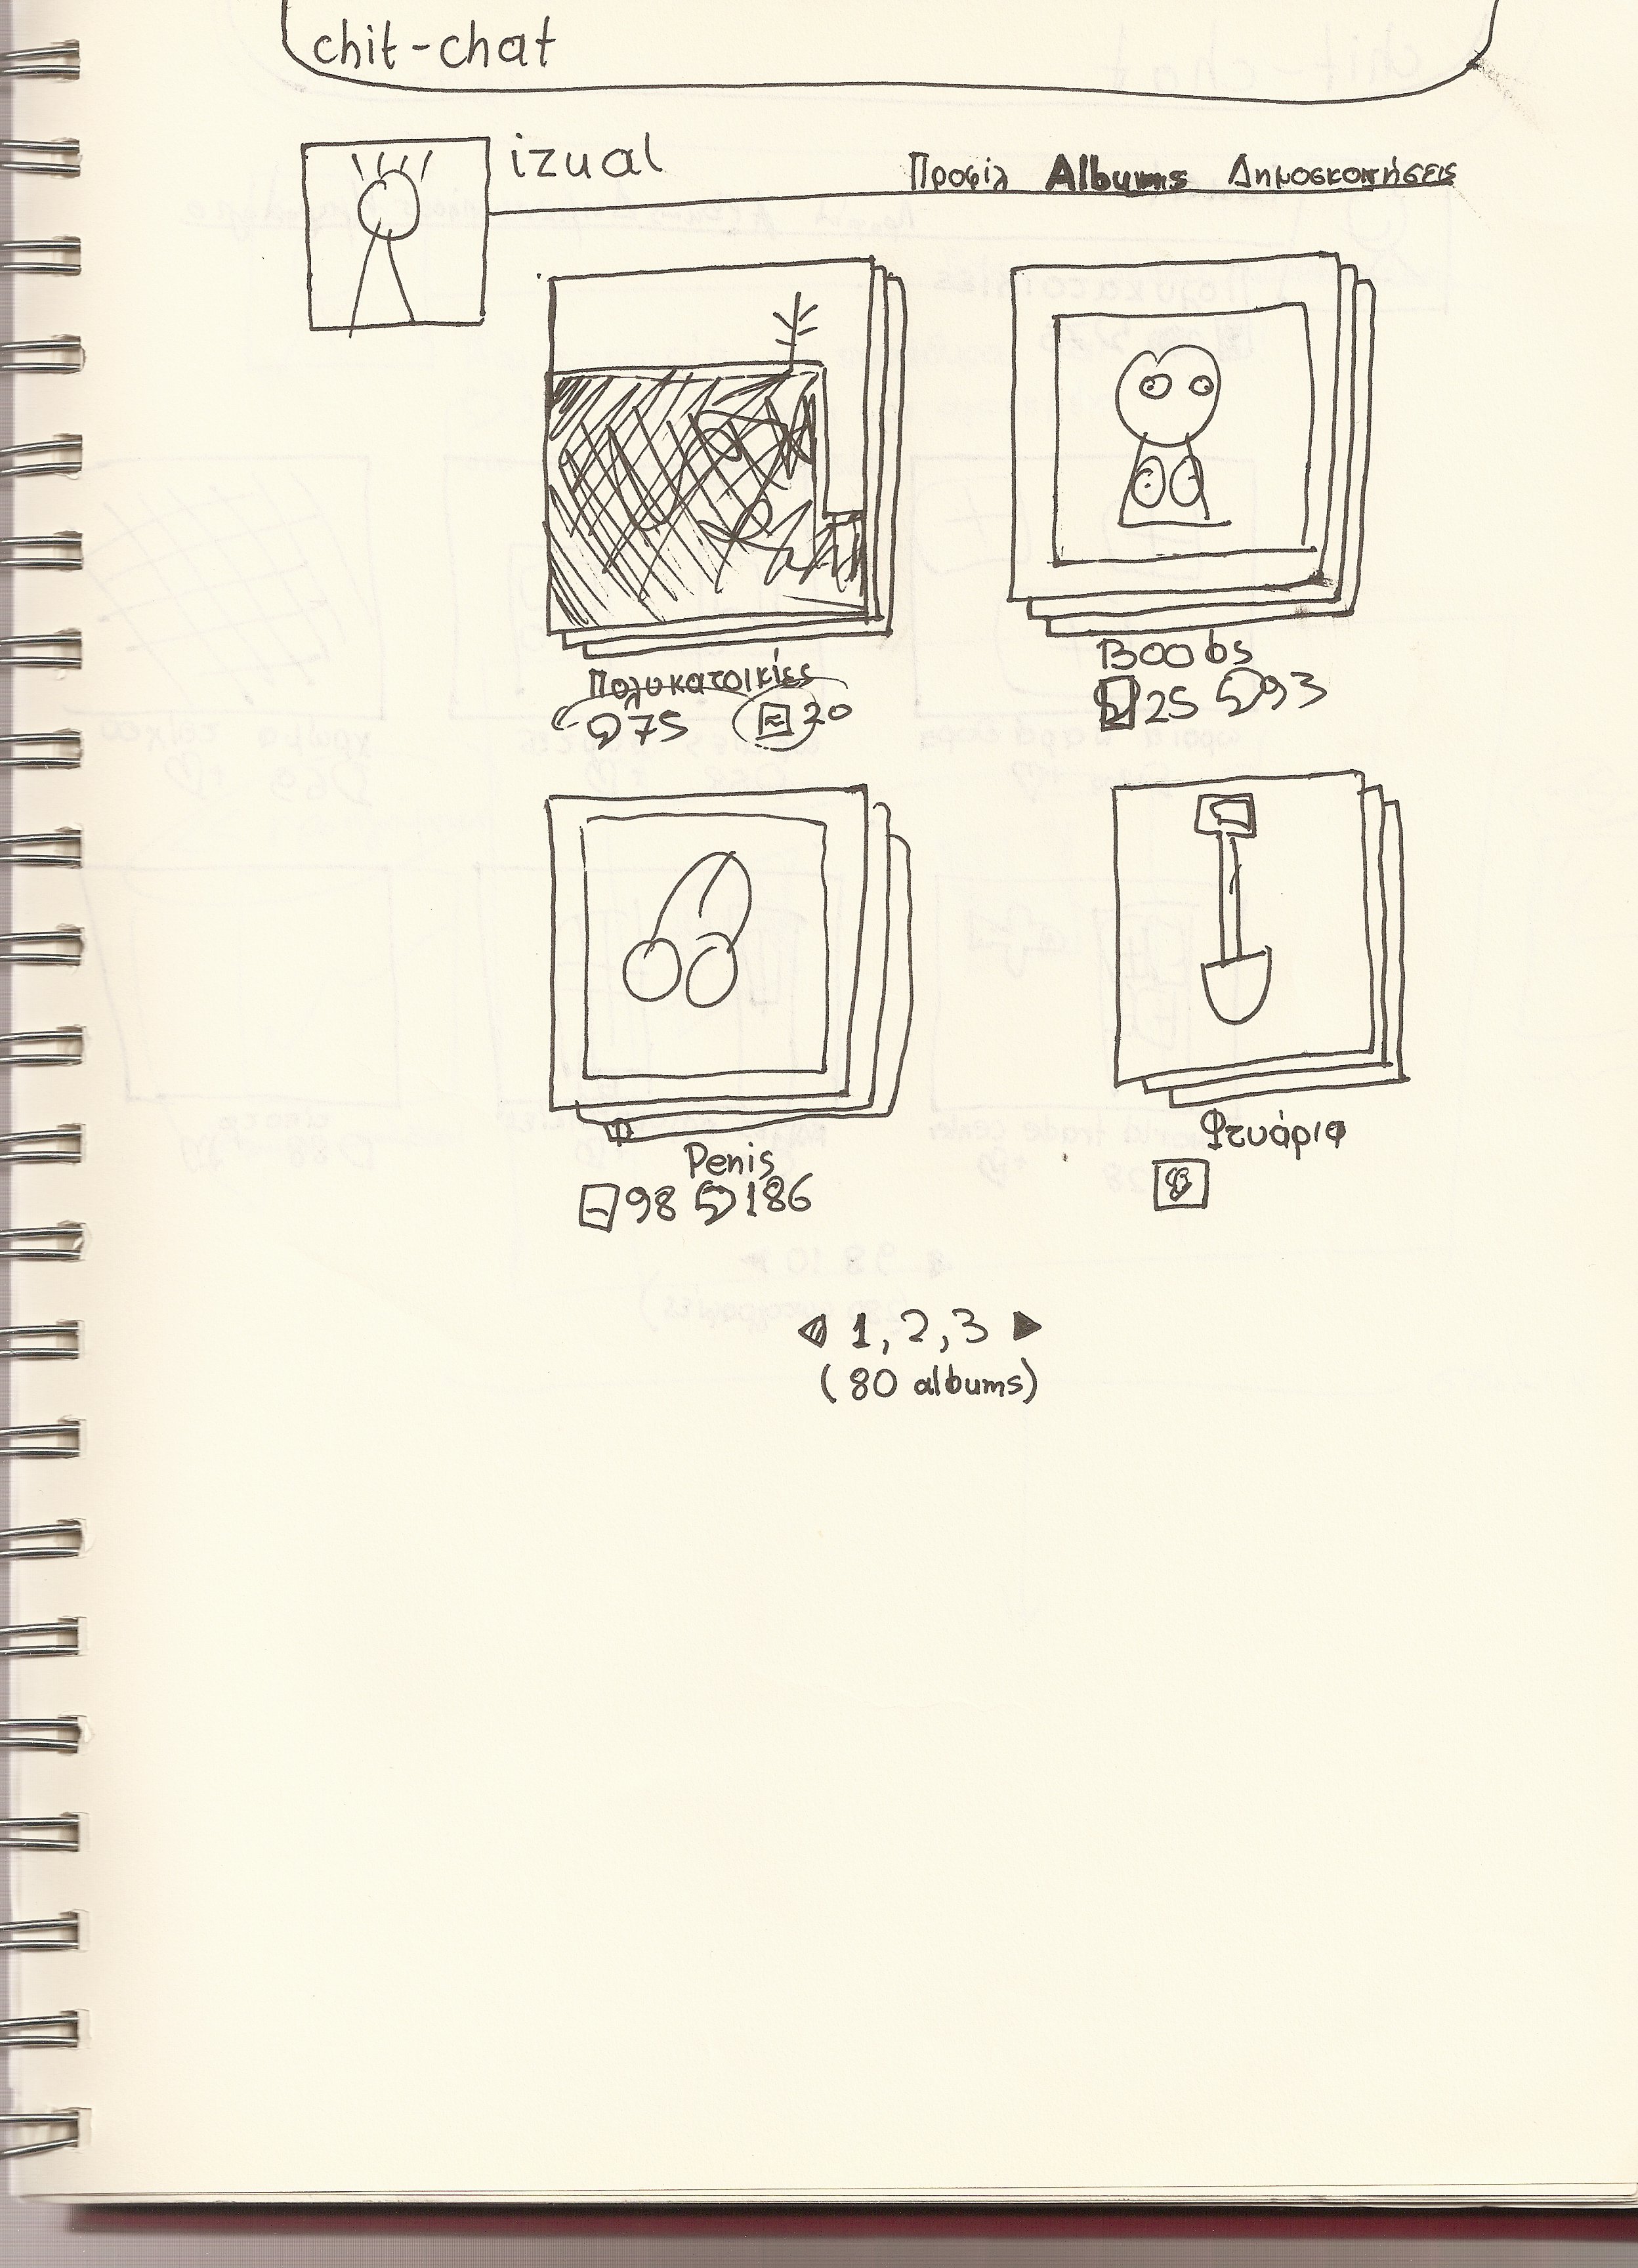 chit-chat
izual
Προφίλ Albums Δημοσκοπήσεις
Πολυκατοικίες
75 20
Boobs
25 93
Penis
98 186
Φτυάρια
1, 2, 3
(80 albums)